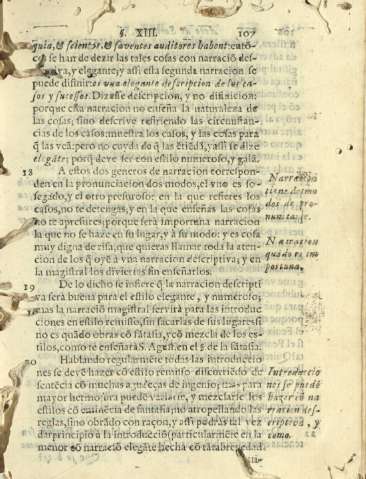 §. XIII. 107
& scientes, & faventes auditores habent: entõ-
ces se han de dezir las tales cosas con narraciõ des-
y elegante, y assi esta segunda narracion se
puede difinir: es una elegante descripcion de los ca-
sos y sucessos. Dizese descripcion, y no difinicion:
porque esta narracion no enseña la naturaleza de
las cosas, sino descrive refiriendo las circunstan-
cias de los casos: muestra los casos, y las cosas para
q̃ las veã: pero no cuyda de q̃ las ẽtiẽdã, y assi se dize
elegãte: porq̃ deve ser con estilo numeroso, y galã.
18 A estos dos generos de narracion correspon-
den en la pronunciacion dos modos, el vno es so-
segado, y el otro presuroso: en la que refieres los
casos, no te detengas, y en la que enseñas las cosas
no te apresures; porque serà importuna narracion
la que no se haze en su lugar, y à su modo: y es cosa
muy digna de risa, que quieras llamar toda la aten-
cion de los q̃ oyẽ à vna narracion descriptiva; y en
la magistral los diviertas sin enseñarlos.
Narracion
tiene dos mo
dos de pro-
nunciarse.
Narracion
quãdo es im
portuna.
19 De lo dicho se infiere q̃ la narracion descripti
va serà buena para el estilo elegante, y numeroso;
mas la narraciõ magistral servirà para las introduc
ciones en estilo remisso, sin sacarlas de sus lugares si
no es quãdo obras cõ fãtasia, y cõ mezcla de los es-
tilos, como te enseñarà S. Agust. en el §. de la fãtasia.
20 Hablando regularmẽte todas las introduccio
nes se devẽ hazer cõ estilo remisso discurriẽdo de
sentẽcia cõ muchas agudeças de ingenio; mas para
mayor hermosura puede variarse, y mezclarse los
estilos cõ eminẽcia de fantasia; no atropellando las
reglas, sino obrãdo con raçon, y assi podras tal vez
dar principio à la introducciõ (particularmẽte en la
menor cõ narraciõ elegãte hecha cõ tãta brevedad
Introduccio
nes se puedẽ
hazer cõ na
rracion des-
criptiva, y
como.